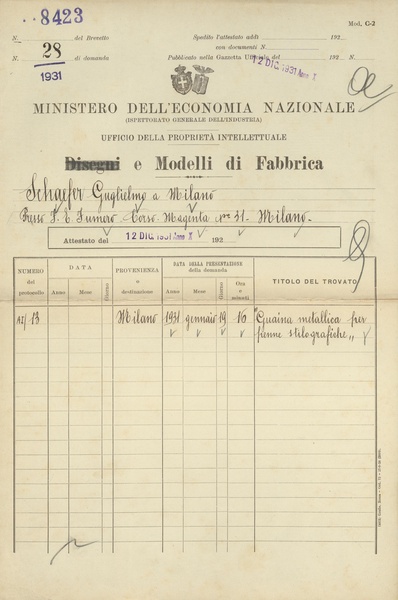 8423
Mod. C-2
N. del Brevetto
Spedito l'attestato addì 192
con documenti N.
N. 28 di domanda
Pubblicato nella Gazzetta Ufficiale del 192 N.
1931
12 DIC. 1931 Anno X
MINISTERO DELL'ECONOMIA NAZIONALE
(ISPETTORATO GENERALE DELL'INDUSTRIA)
UFFICIO DELLA PROPRIETÀ INTELLETTUALE
Disegni e Modelli di Fabbrica
Schaefer Guglielmo a Milano
Presso S. E. Fumero Corso Magenta N° 31. Milano.
Attestato del 12 DIC. 1931 Anno X 192
NUMERO del protocollo
DATA
Anno Mese Giorno
PROVENIENZA e destinazione
DATA DELLA PRESENTAZIONE della domanda
Anno Mese Giorno Ora e minuti
TITOLO DEL TROVATO
13 Milano 1931 gennaio 19 16 "Guaina metallica per
penne stilografiche"